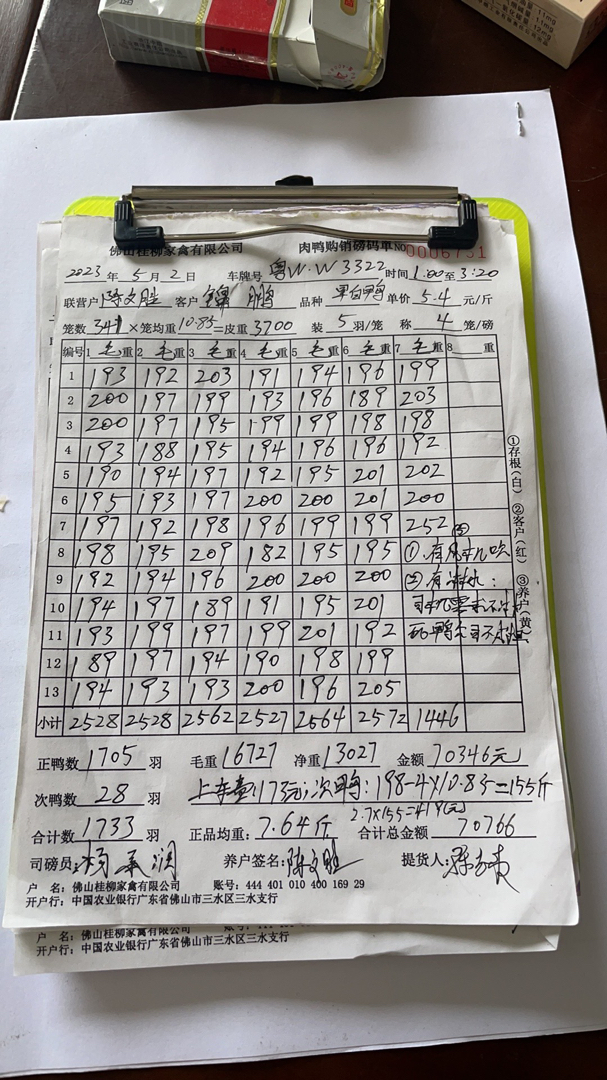 11mg
11mg
12mg
佛山桂柳家禽有限公司 肉鸭购销磅码单 No 0006731
2023年5月2日 车牌号 粤W·W3322 时间 1:00至3:20
联营户 陈文胜 客户 锦鹏 品种 黑白鸭 单价 5.4 元/斤
笼数 341 ×笼均重 10.85 =皮重 3700 装 5 羽/笼 称 4 笼/磅
编号 1 毛重 2 毛重 3 毛重 4 毛重 5 毛重 6 毛重 7 毛重 8 重
1 193 192 203 191 194 196 199
2 200 197 199 193 196 189 203
3 200 197 195 199 199 198 198
4 193 188 195 194 196 196 192
5 190 194 197 192 195 201 202
6 195 193 197 200 200 201 200
7 197 192 198 196 199 199 252
8 198 195 209 182 195 195 ①.有风机吹
9 192 194 196 200 200 200 ②有淋水:
10 194 197 189 191 195 201
11 193 199 197 199 201 192
12 189 197 194 190 198 199
13 194 193 193 200 196 205
小计 2528 2528 2562 2527 2564 2572 1446
①存根(白) ②客户(红) ③养户(黄)
正鸭数 1705 羽 毛重 16727 净重 13027 金额 70346元
次鸭数 28 羽 上车重:173元; 次鸭: 198-4×10.85=155斤
2.7×155=419(元)
合计数 1733 羽 正品均重: 7.64斤 合计总金额 70766
司磅员: 养户签名: 陈文胜 提货人:
户 名: 佛山桂柳家禽有限公司 账号: 444 401 010 400 169 29
开户行: 中国农业银行广东省佛山市三水区三水支行
户 名: 佛山桂柳家禽有限公司
开户行: 中国农业银行广东省佛山市三水区三水支行